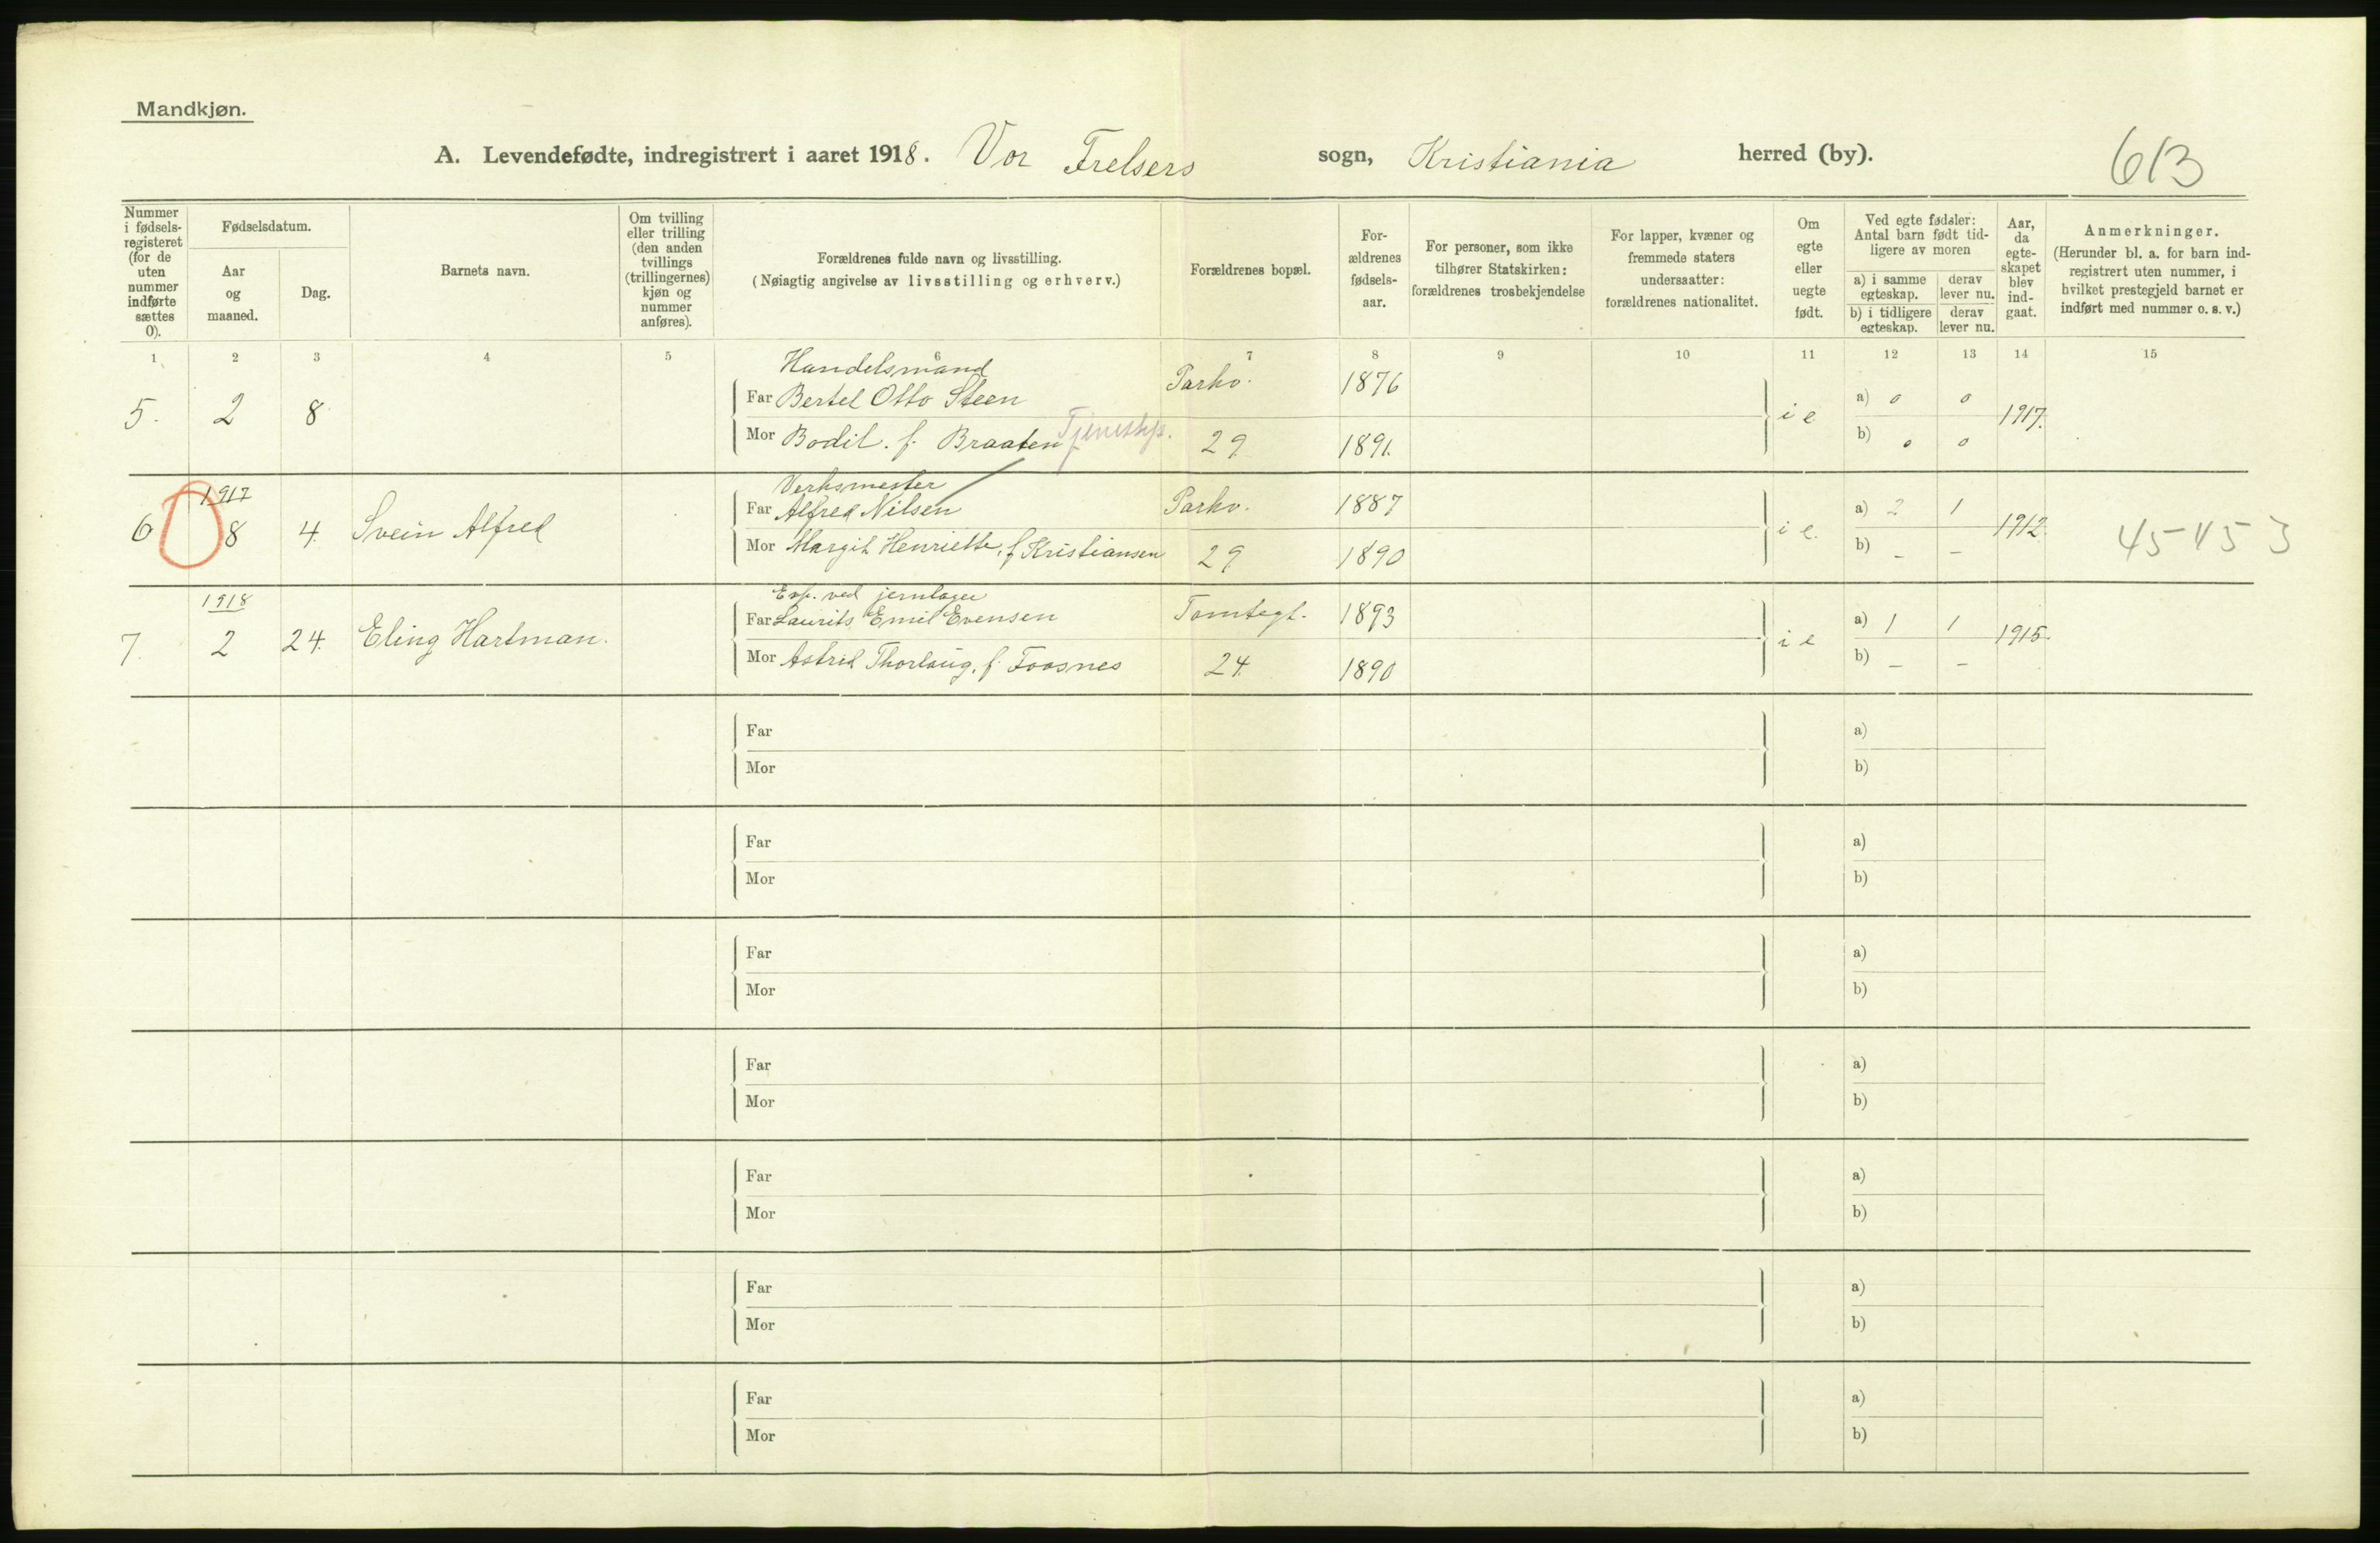 Mandkjøn.
A. Levendefødte, indregistrert i aaret 1918. Vor Frelsers sogn, Kristiania herred (by). 613
Nummer i fødsels-registeret (for de uten nummer indførte sættes 0).
Fødselsdatum.
Aar og maaned.
Dag.
Barnets navn.
Om tvilling eller trilling (den anden tvillings (trillingernes) kjøn og nummer anføres).
Forældrenes fulde navn og livsstilling.
(Nøiagtig angivelse av livsstilling og erhverv.)
Forældrenes bopæl.
For-ældrenes fødsels-aar.
For personer, som ikke tilhører Statskirken: forældrenes trosbekjendelse
For lapper, kvæner og fremmede staters undersaatter: forældrenes nationalitet.
Om egte eller uegte født.
Ved egte fødsler: Antal barn født tid-ligere av moren
a) i samme egteskap.
derav lever nu.
b) i tidligere egteskap.
derav lever nu.
Aar, da egte-skapet blev ind-gaat.
Anmerkninger.
(Herunder bl. a. for barn ind-registrert uten nummer, i hvilket prestegjeld barnet er indført med nummer o. s. v.)
1 2 3 4 5 6 7 8 9 10 11 12 13 14 15
Handelsmand
5. 2 8 Far Bertel Otto Steen Parkv. 1876 i e a) 0 0 1917.
Mor Bodil. f. Braaten 29 1891. b) 0 0
1917 Verksmester
6 8 4. Svein Alfred Far Alfred Nilsen Parkv. 1887 i e. a) 2 1 1912. 45 45 3
Mor Margit Henriette, f. Kristiansen 29 1890 b) - -
1918 Exp. ved jernlager
7. 2 24. Eling Hartman. Far Laurits Emil Evensen Tomtegt. 1893 i e a) 1 1 1915.
Mor Astrid Thorlaug, f. Foosnes 24. 1890 b) - -
Far a)
Mor b)
Far a)
Mor b)
Far a)
Mor b)
Far a)
Mor b)
Far a)
Mor b)
Far a)
Mor b)
Far a)
Mor b)